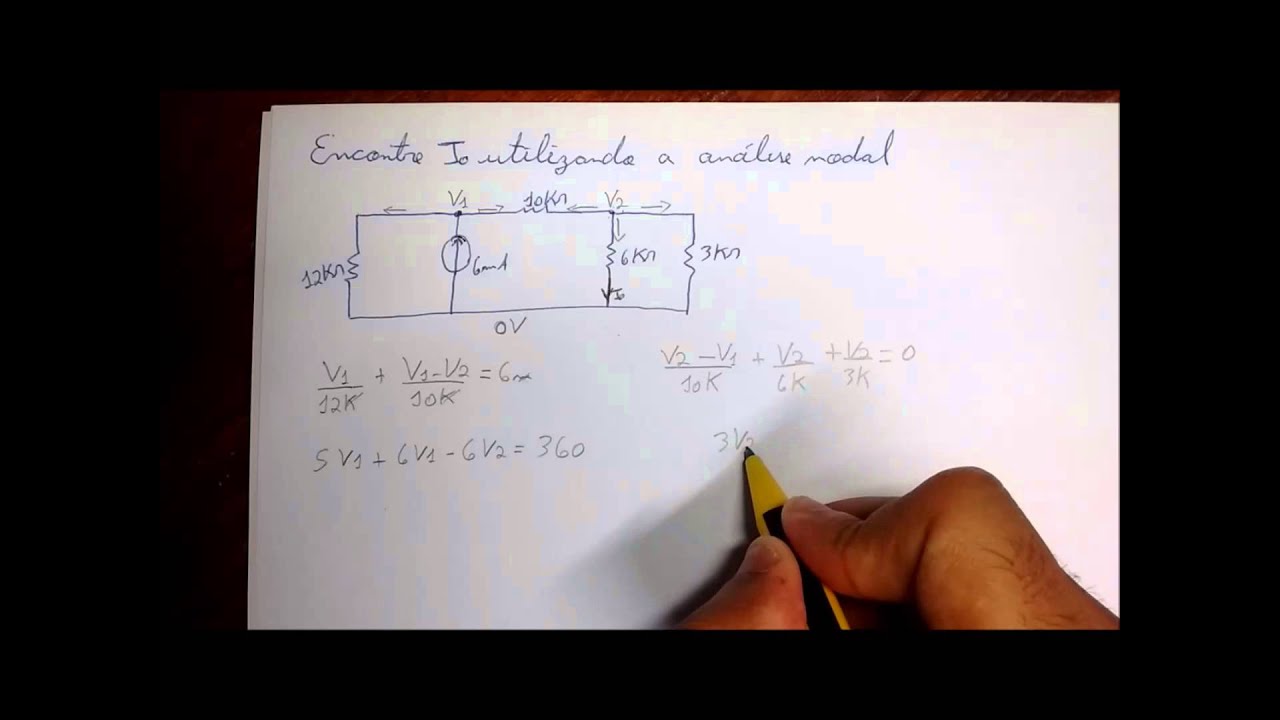 Encontre Io utilizando a análise nodal
V1 10KΩ V2
12KΩ 6mA 6KΩ 3KΩ
Io
0V
V1/12K + (V1-V2)/10K = 6m
(V2-V1)/10K + V2/6K + V2/3K = 0
5V1 + 6V1 - 6V2 = 360
3V2